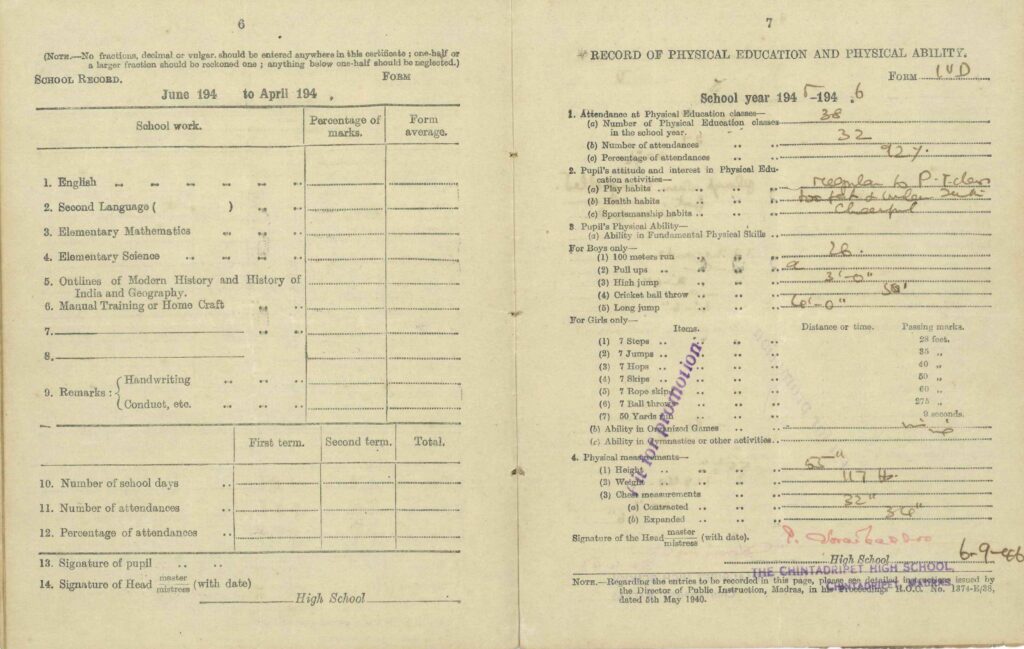 6
(NOTE.—No fractions, decimal or vulgar, should be entered anywhere in this certificate; one-half or
a larger fraction should be reckoned one; anything below one-half should be neglected.)
SCHOOL RECORD. FORM
June 194 to April 194 .
School work. Percentage of marks. Form average.
1. English
2. Second Language ( )
3. Elementary Mathematics
4. Elementary Science
5. Outlines of Modern History and History of
India and Geography.
6. Manual Training or Home Craft
7.
8.
9. Remarks : { Handwriting
Conduct, etc.
First term. Second term. Total.
10. Number of school days
11. Number of attendances
12. Percentage of attendances
13. Signature of pupil
14. Signature of Head master/mistress (with date)
High School
7
RECORD OF PHYSICAL EDUCATION AND PHYSICAL ABILITY.
FORM IV D
School year 1945-1946
1. Attendance at Physical Education classes—
(a) Number of Physical Education classes 38
in the school year.
(b) Number of attendances 32
(c) Percentage of attendances 92%
2. Pupil's attitude and interest in Physical Edu-
cation activities—
(a) Play habits regular to P.T. class
(b) Health habits too fat &
(c) Sportsmanship habits Cheerful
3 Pupil's Physical Ability—
(a) Ability in Fundamental Physical Skills
For Boys only—
(1) 100 meters run
(2) Pull ups
(3) High jump 3'-0"
(4) Cricket ball throw
(5) Long jump 6'-0"
For Girls only—
Items. Distance or time. Passing marks.
(1) 7 Steps 28 feet.
(2) 7 Jumps 35 „
(3) 7 Hops 40 „
(4) 7 Skips 50 „
(5) 7 Rope skips 60 „
(6) 7 Ball throw 275 „
(7) 50 Yards run 9 seconds.
(b) Ability in Organized Games
(c) Ability in Gymnastics or other activities
fit for promotion
4. Physical measurements—
(1) Height 55"
(2) Weight 117 lb.
(3) Chest measurements
(a) Contracted 32"
(b) Expanded 34"
Signature of the Head master/mistress (with date).
High School 6-9-46
THE CHINTADRIPET HIGH SCHOOL,
CHINTADRIPET, MADRAS.
NOTE.—Regarding the entries to be recorded in this page, please see detailed instructions issued by
the Director of Public Instruction, Madras, in his Proceedings R.O.C. No. 1374-E/38,
dated 5th May 1940.